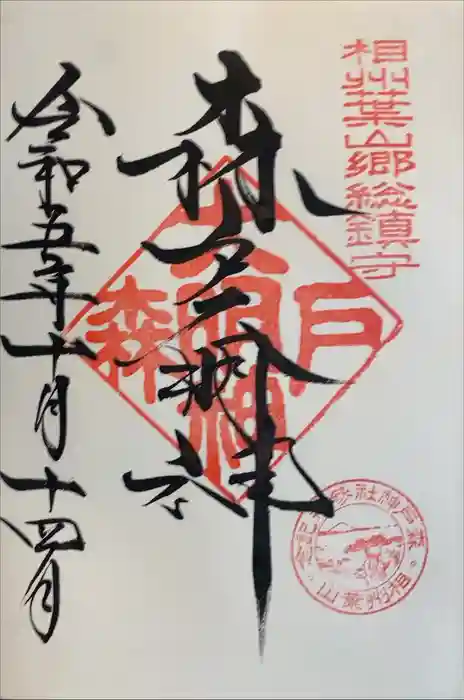 相州葉山郷総鎮守
森戸大明神
令和五年十月十四日
森戸神社参拝記念
相州葉山